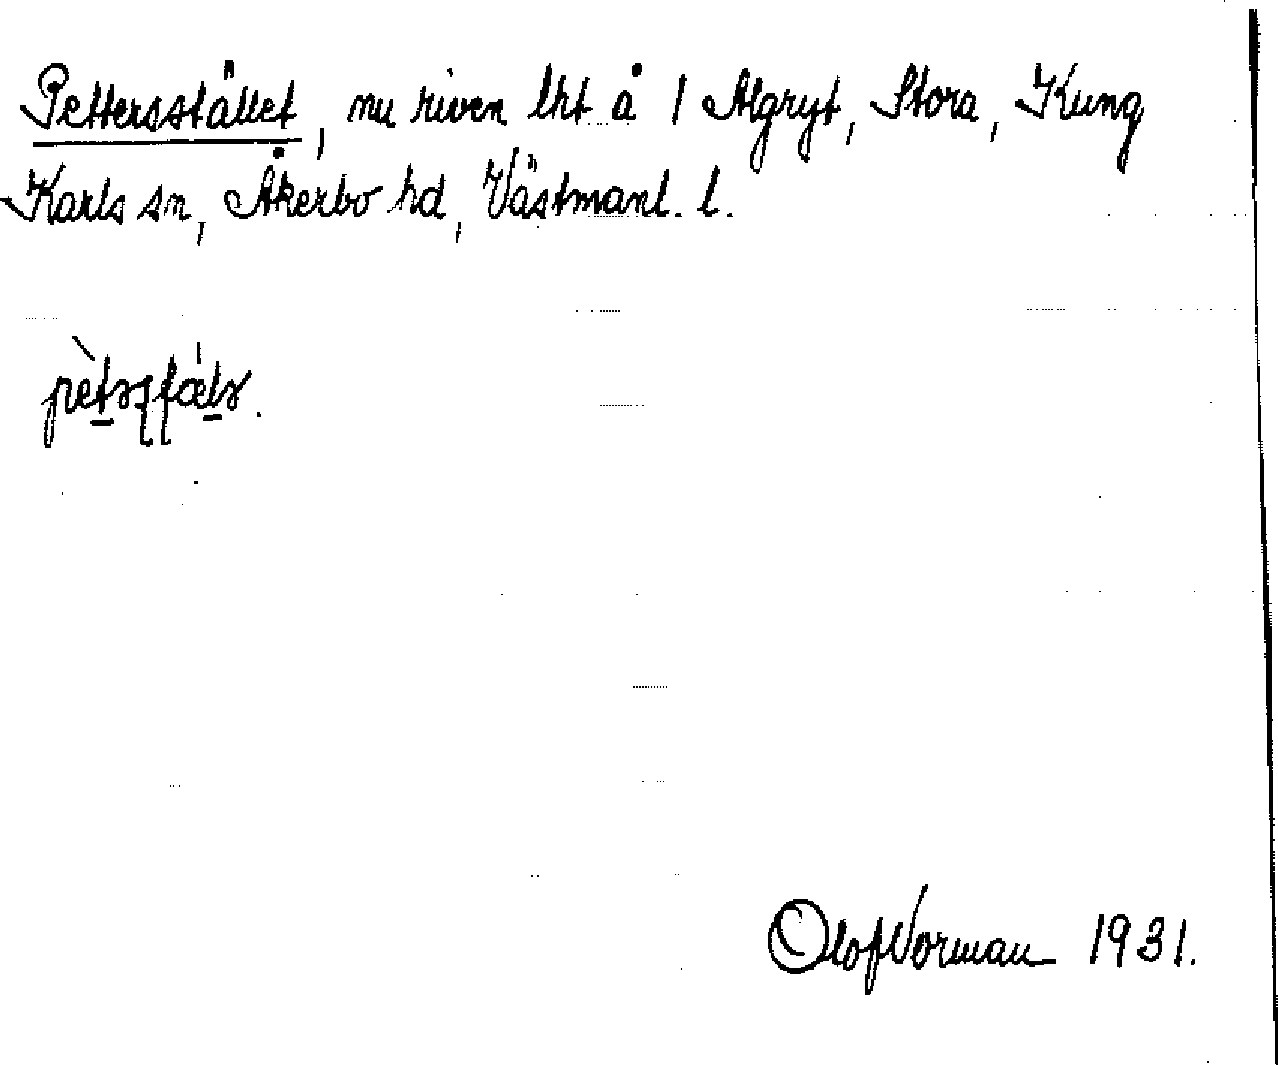 Pettersstället, nu riven lht å 1 Algryt, Stora, Kung
Karls sn, Åkerbo hd, Västmanl. l.
Olof Norman 1931.